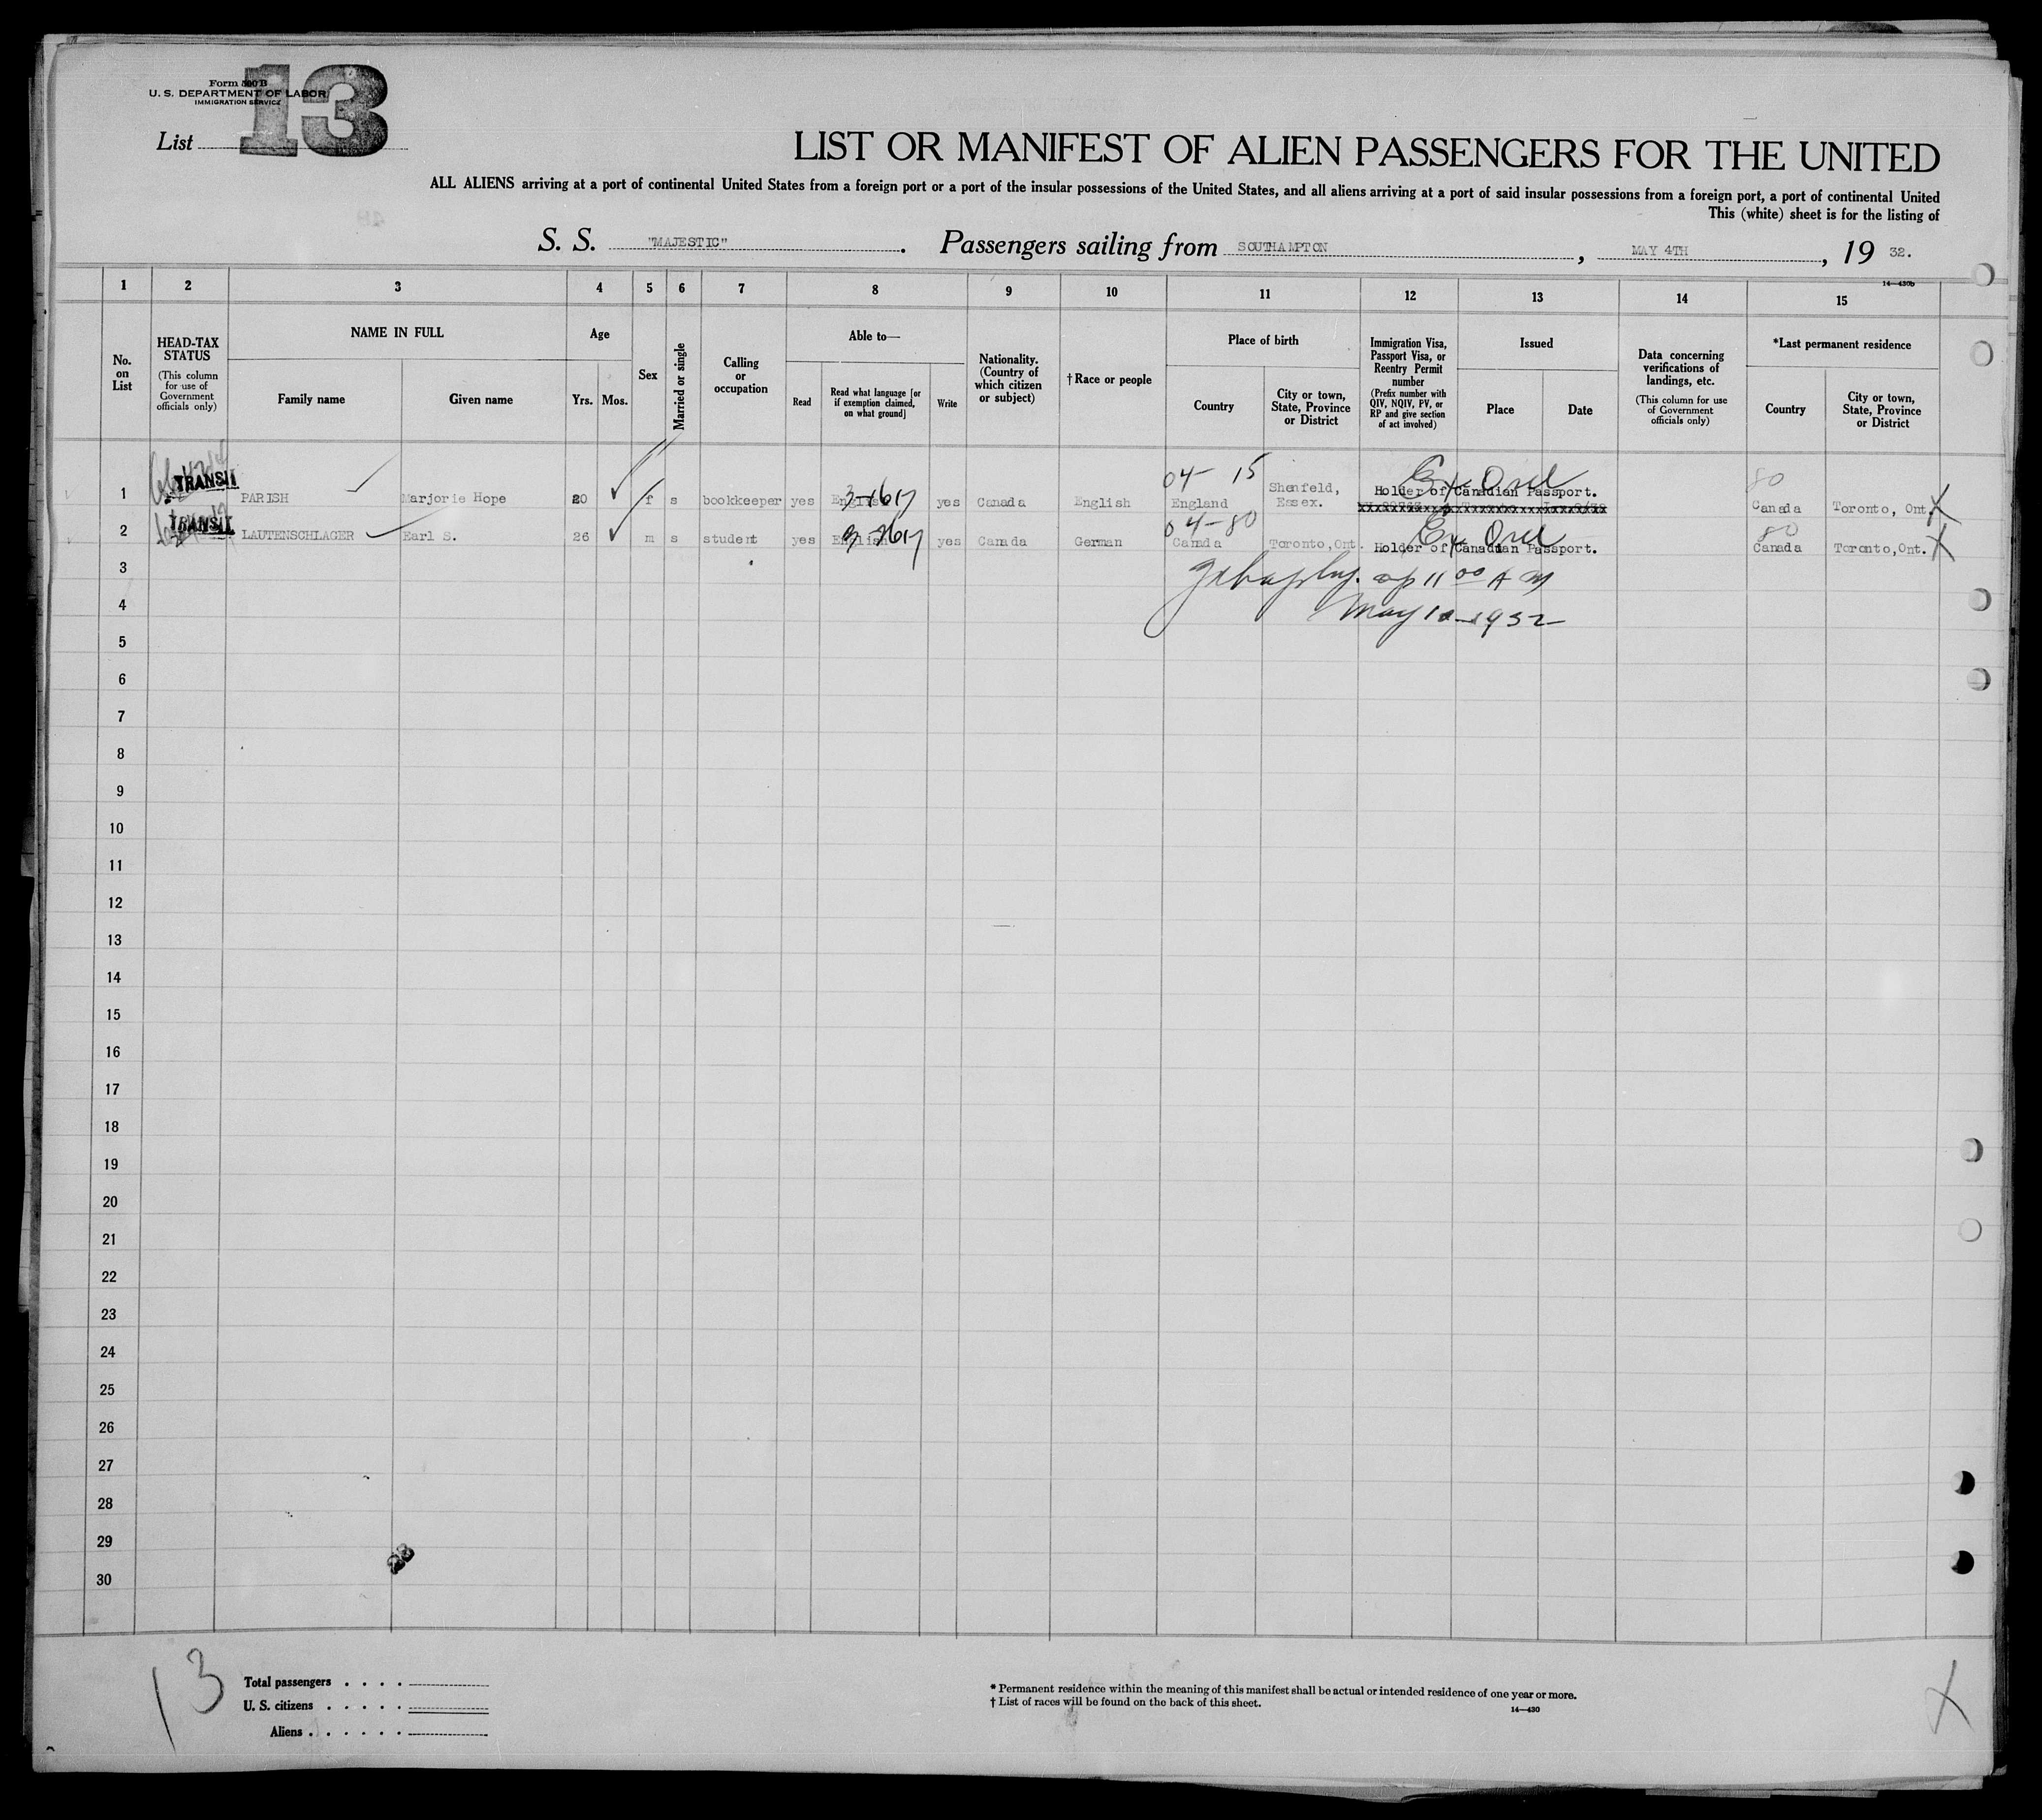 Form 500 B
U. S. DEPARTMENT OF LABOR
IMMIGRATION SERVICE
List 13
LIST OR MANIFEST OF ALIEN PASSENGERS FOR THE UNITED
ALL ALIENS arriving at a port of continental United States from a foreign port or a port of the insular possessions of the United States, and all aliens arriving at a port of said insular possessions from a foreign port, a port of continental United
This (white) sheet is for the listing of
S. S. "MAJESTIC". Passengers sailing from SOUTHAMPTON, MAY 4TH, 19 32.
14—430b
1 2 3 4 5 6 7 8 9 10 11 12 13 14 15
No. on List
HEAD-TAX STATUS (This column for use of Government officials only)
NAME IN FULL
Family name
Given name
Age
Yrs. Mos.
Sex
Married or single
Calling or occupation
Able to—
Read
Read what language [or if exemption claimed, on what ground]
Write
Nationality. (Country of which citizen or subject)
† Race or people
Place of birth
Country
City or town, State, Province or District
Immigration Visa, Passport Visa, or Reentry Permit number (Prefix number with QIV, NQIV, PV, or RP and give section of act involved)
Issued
Place
Date
Data concerning verifications of landings, etc. (This column for use of Government officials only)
*Last permanent residence
Country
City or town, State, Province or District
04- 15 80
1 TRANSIT PARISH Marjorie Hope 20 f s bookkeeper yes English yes Canada English England Shenfeld, Essex. Holder of Canadian Passport. Canada Toronto, Ont. X
04-80 80
2 TRANSIT LAUTENSCHLAGER Earl S. 26 m s student yes English yes Canada German Canada Toronto, Ont. Holder of Canadian Passport. Canada Toronto, Ont. X
3 11 00 A M
4 May 10-1932
5
6
7
8
9
10
11
12
13
14
15
16
17
18
19
20
21
22
23
24
25
26
27
28
29
30
13
Total passengers . . . .
U. S. citizens . . . . .
Aliens . . . . . .
* Permanent residence within the meaning of this manifest shall be actual or intended residence of one year or more.
† List of races will be found on the back of this sheet.
14—430
X